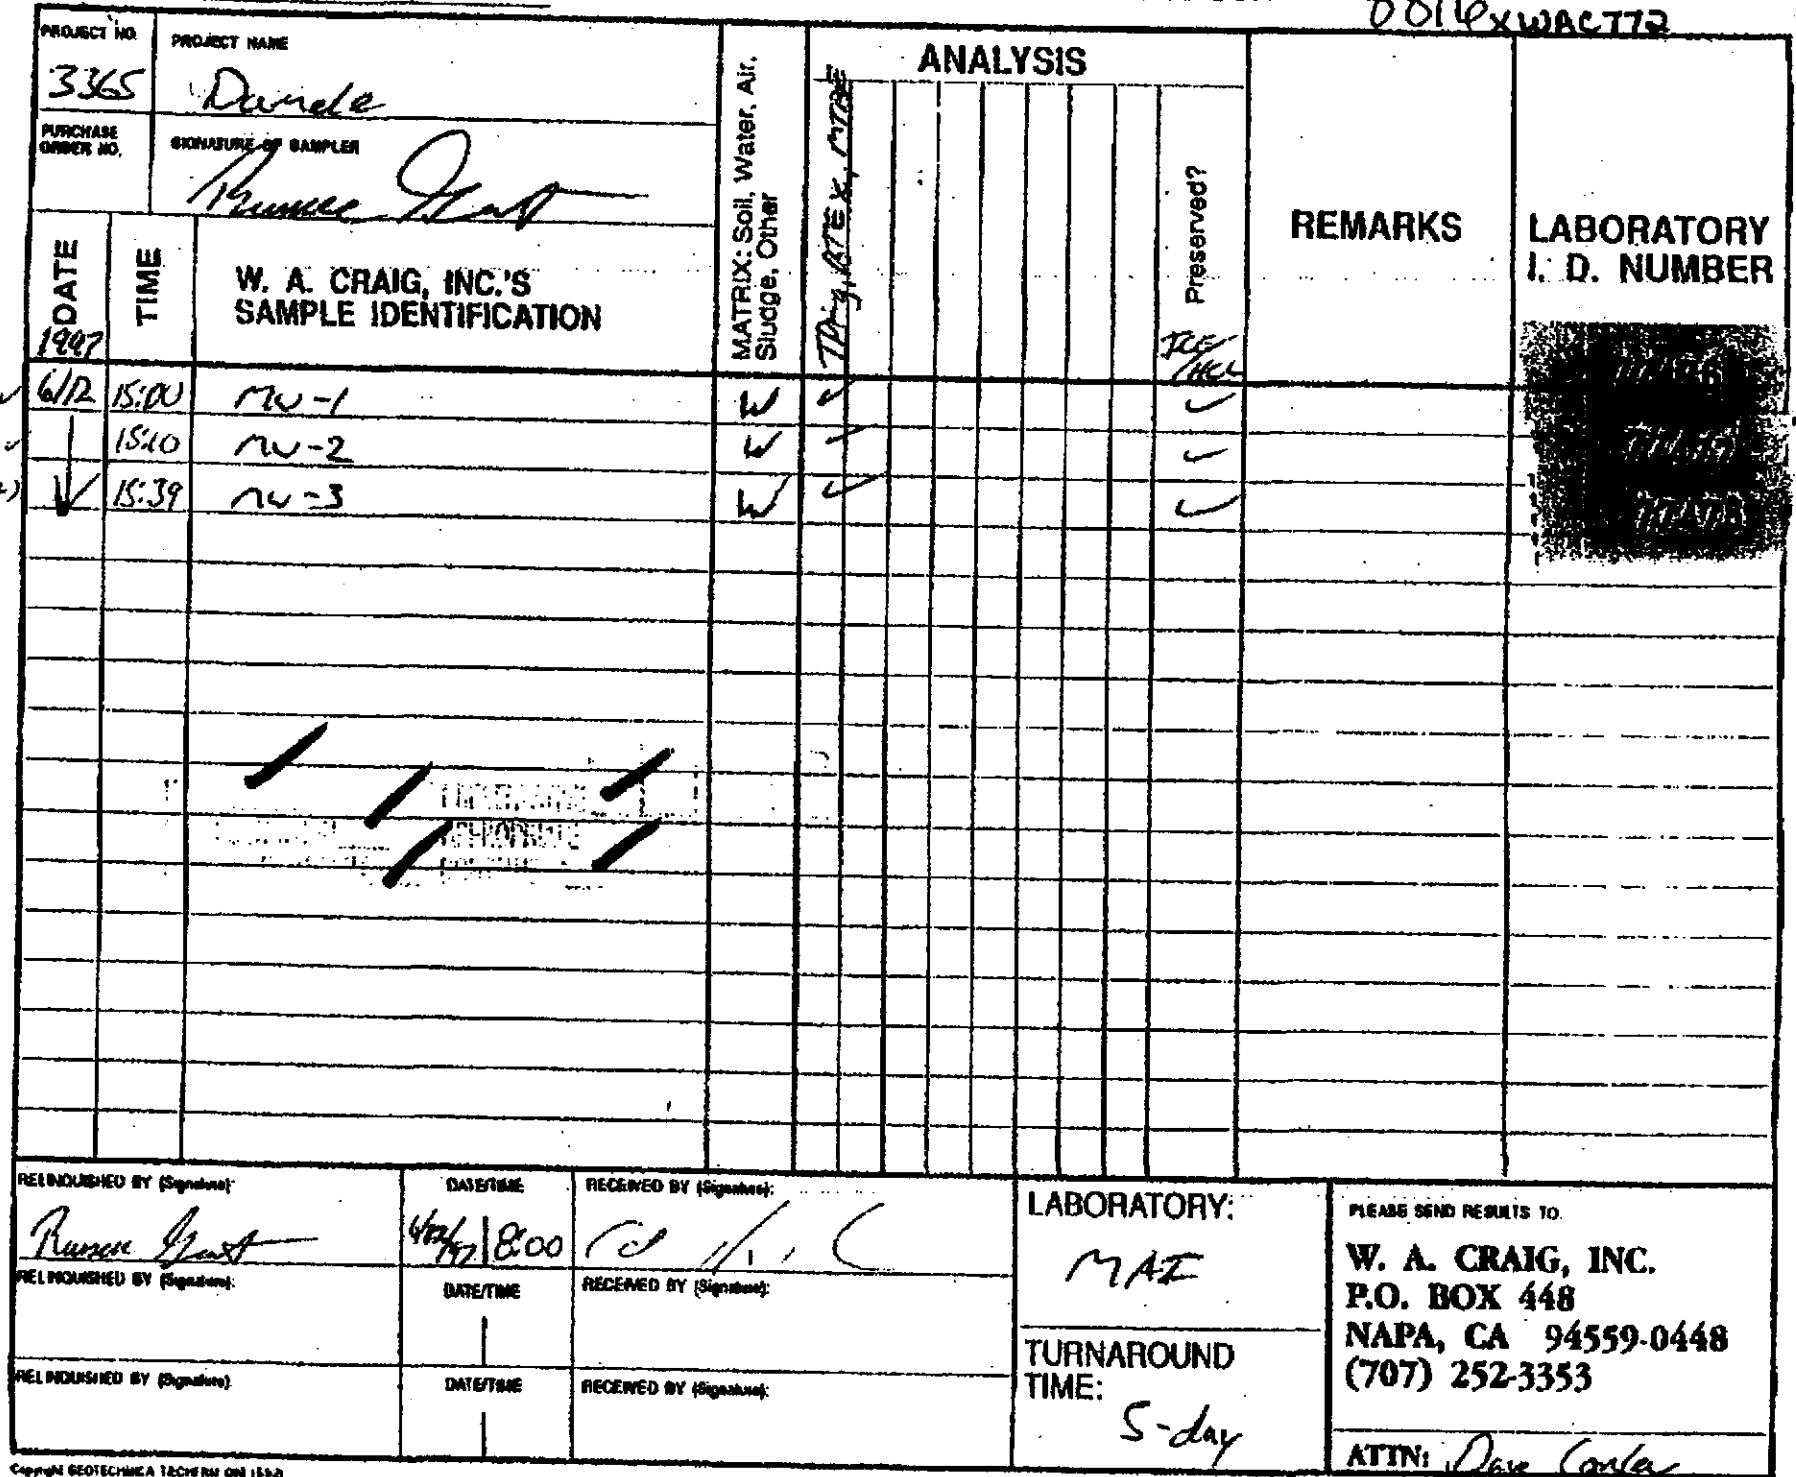 PROJECT NO.
3365
PROJECT NAME
PURCHASE
ORDER NO.
SIGNATURE OF SAMPLER
DATE
1997
TIME
W. A. CRAIG, INC.'S
SAMPLE IDENTIFICATION
MATRIX: Soil, Water, Air,
Sludge, Other
ANALYSIS
TPHg, BTEX, MTBE
Preserved?
ICE/
HCL
REMARKS
LABORATORY
I. D. NUMBER
6/12 15:00 MW-1 W ✓ ✓
15:20 MW-2 W ✓ ✓
15:39 MW-3 W ✓ ✓
RELINQUISHED BY (Signature):
DATE/TIME
6/12/97 | 8:00
RECEIVED BY (Signature):
RELINQUISHED BY (Signature):
DATE/TIME
RECEIVED BY (Signature):
RELINQUISHED BY (Signature)
DATE/TIME
RECEIVED BY (Signature):
LABORATORY:
MAI
TURNAROUND
TIME:
5-day
PLEASE SEND RESULTS TO:
W. A. CRAIG, INC.
P.O. BOX 448
NAPA, CA 94559-0448
(707) 252-3353
ATTN: Dave